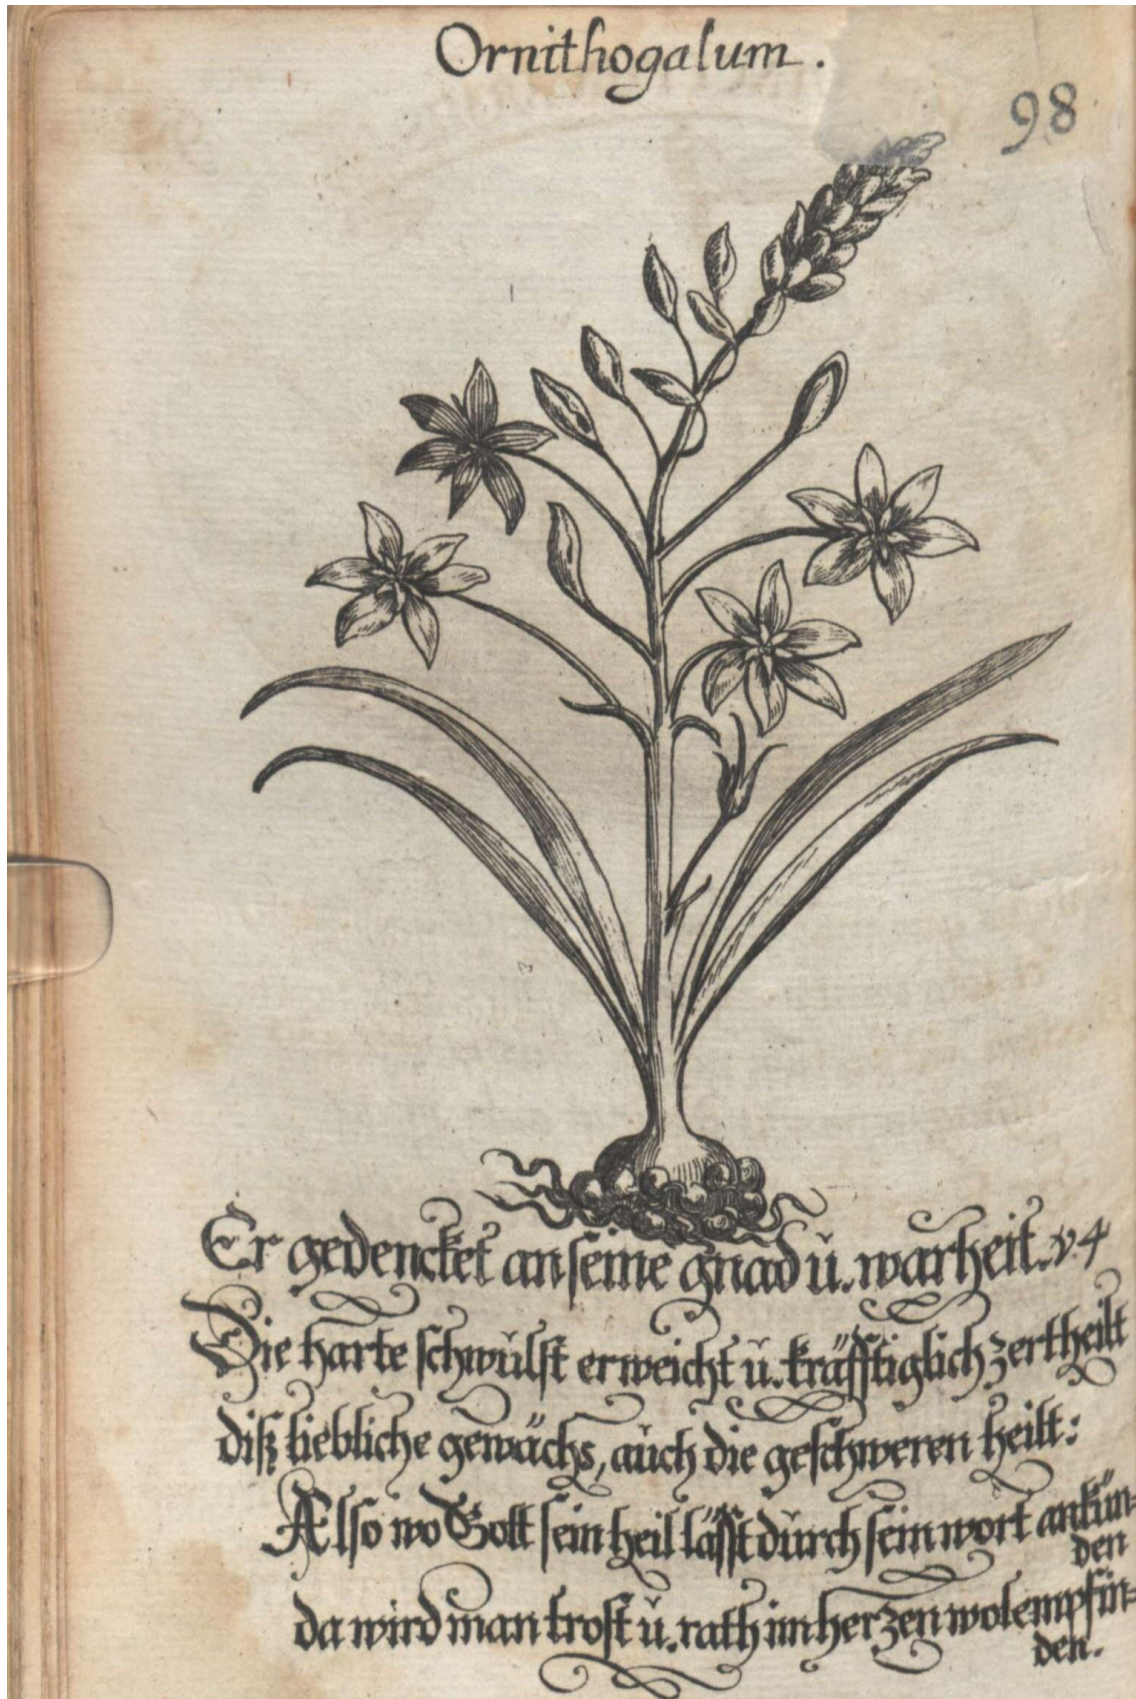 Ornithogalum.
98
Er gedencket an seine gnad ŭ. warheit. v. 4
Die harte schwŭlst erweicht ŭ. kräfftiglich zertheilt
diß liebliche gewächs, aŭch die geschweren heilt:
Also wo Gott sein heil läfst dŭrch sein wort ankün-
den
da wird man trost ŭ. rath im herzen wol empfin-
den.